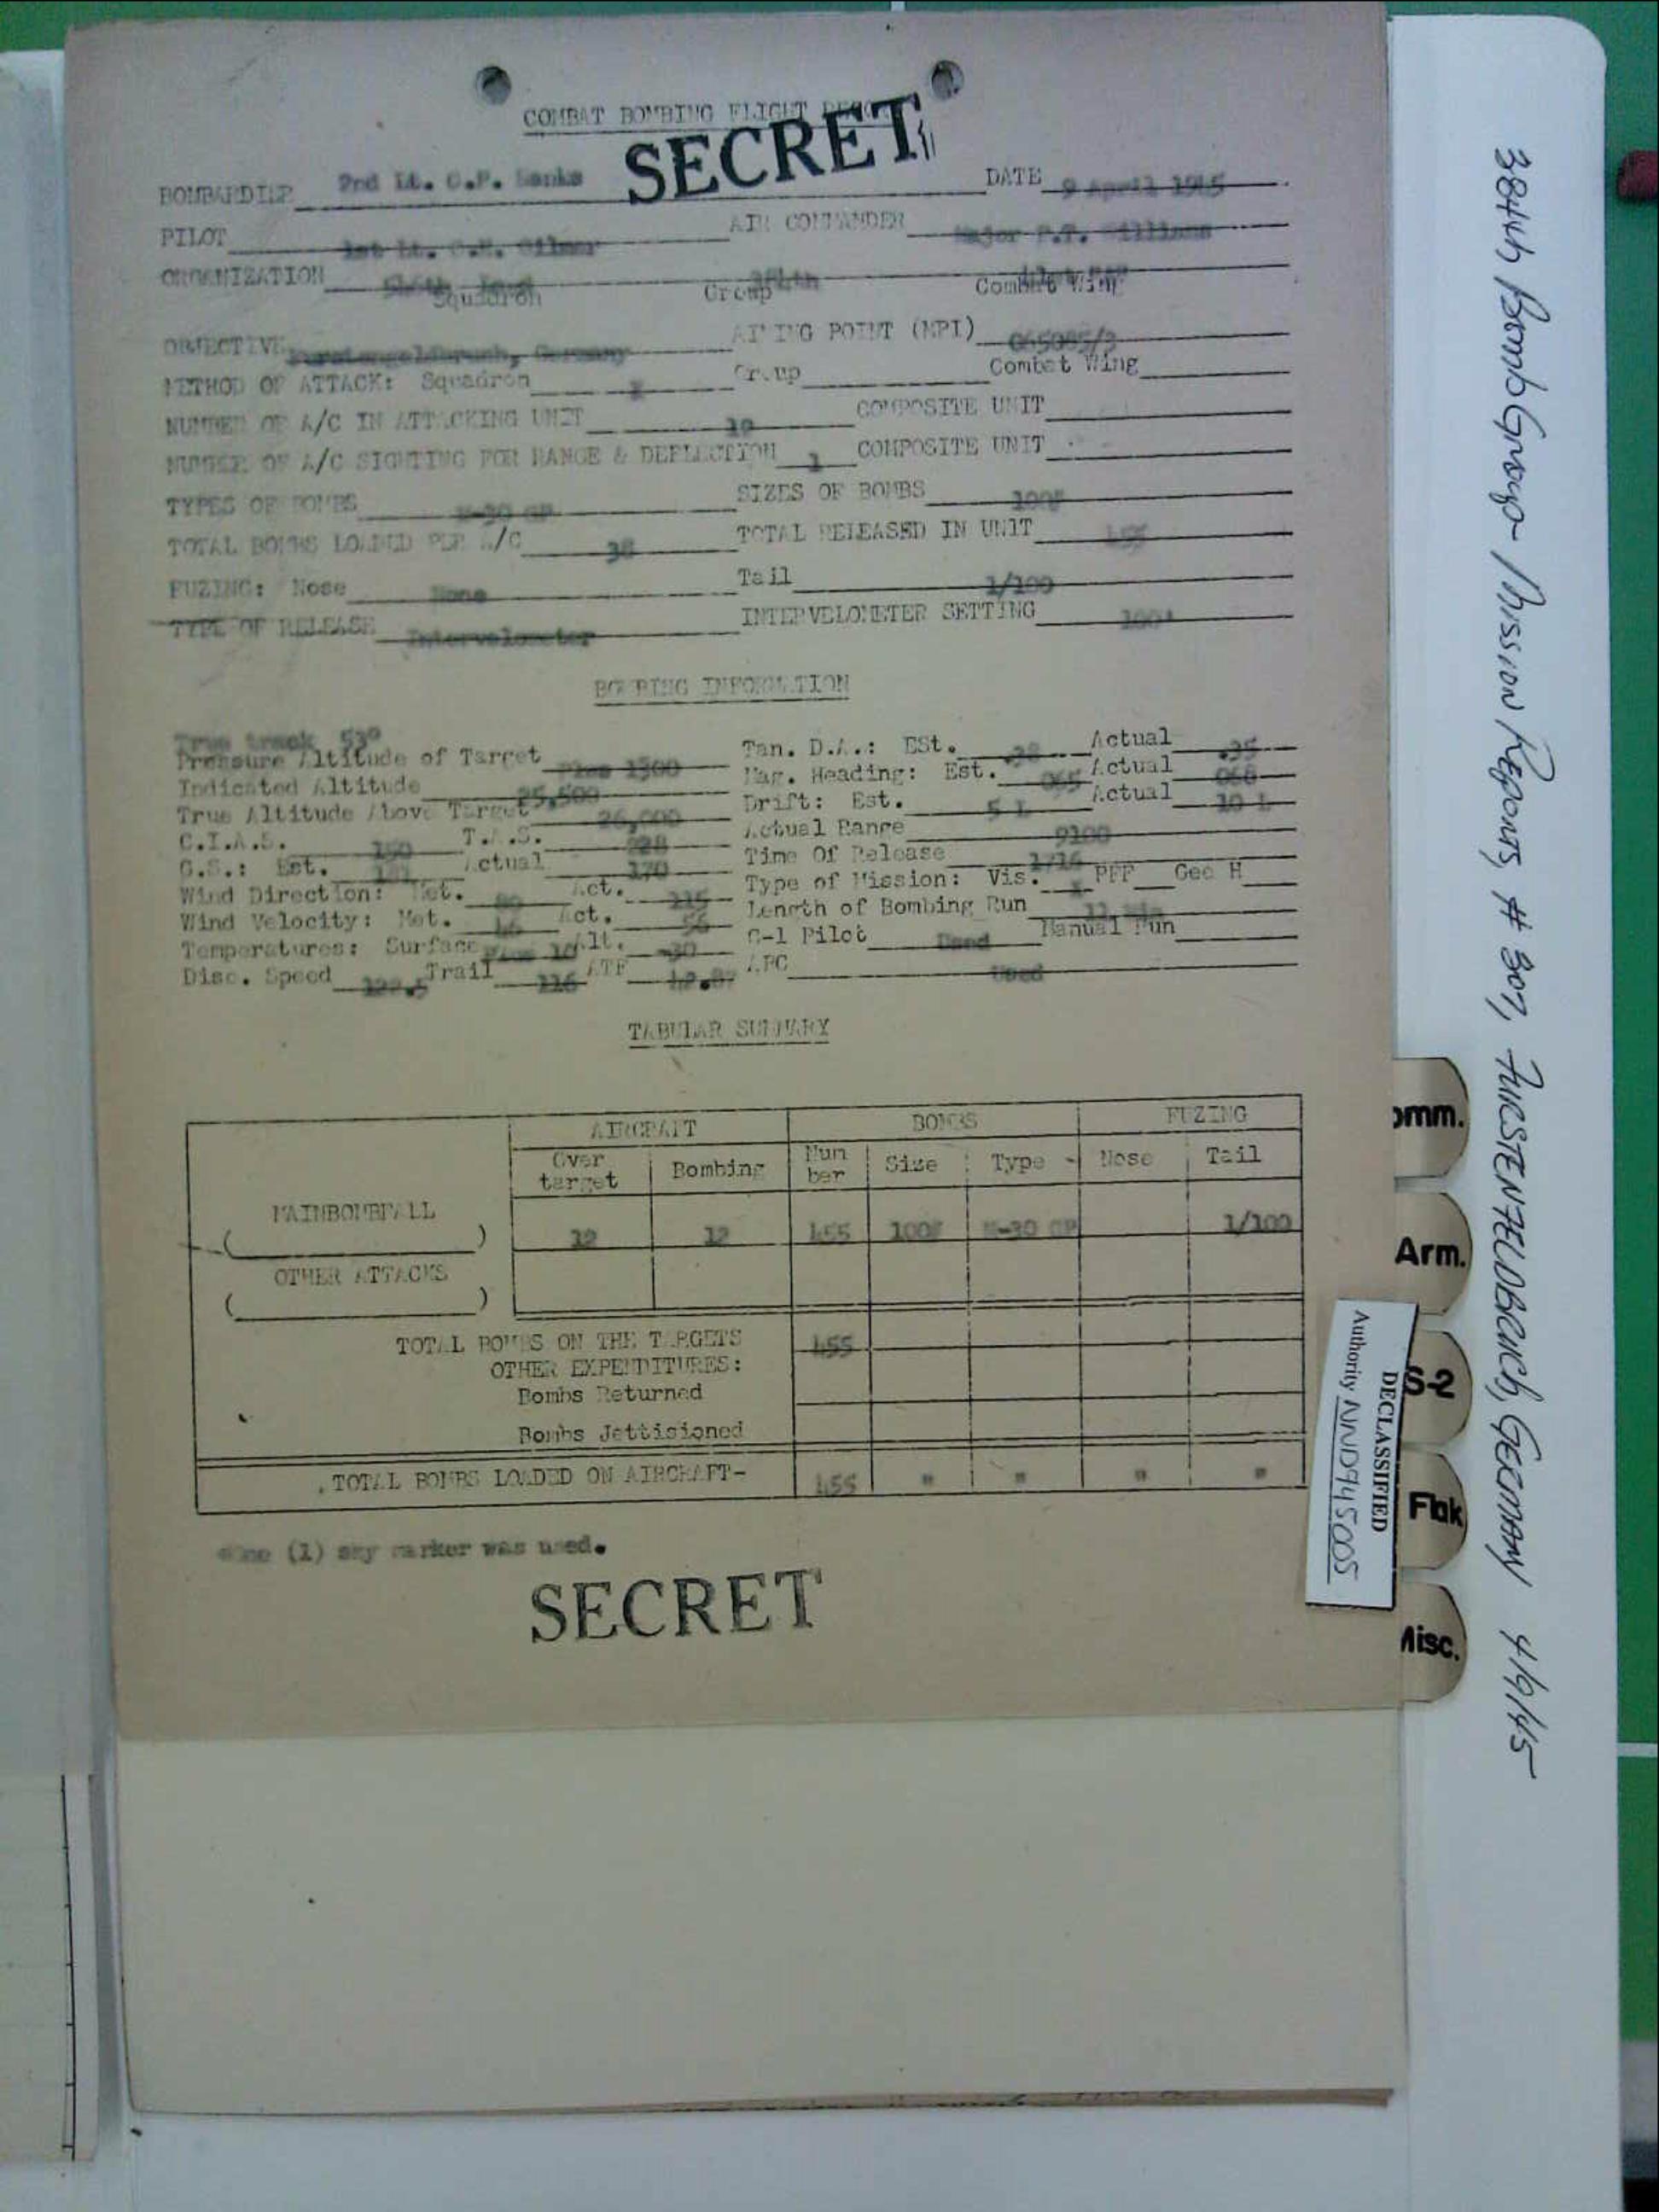 COMBAT BOMBING FLIGHT
SECRET
BOMBARDIER 2nd Lt. DATE 9 April 1945
PILOT 1st Lt. AIR COMMANDER Major
ORGANIZATION Squadron 384th Group Combat Wing
OBJECTIVE Germany AIMING POINT (MPI)
METHOD OF ATTACK: Squadron x Group Combat Wing
NUMBER OF A/C IN ATTACKING UNIT 12 COMPOSITE UNIT
NUMBER OF A/C SIGHTING FOR RANGE & DEFLECTION 1 COMPOSITE UNIT
TYPES OF BOMBS M-30 GP SIZES OF BOMBS 100#
TOTAL BOMBS LOADED PER A/C 38 TOTAL RELEASED IN UNIT 455
FUZING: Nose None Tail 1/100
TYPE OF RELEASE Intervalometer INTERVELOMETER SETTING 100'
BOMBING INFORMATION
True track 53°
Pressure Altitude of Target Plus 1300 Tan. D.A.: ESt. .38 Actual .35
Indicated Altitude 25,500 Mag. Heading: Est. 065 Actual
True Altitude Above Target 26,000 Drift: Est. 5 L Actual 10 L
C.I.A.S. 150 T.A.S. 228 Actual Range 9100
G.S.: Est. Actual 170 Time Of Release 1716
Wind Direction: Met. Act. 115 Type of Mission: Vis. x PFF Gee H
Wind Velocity: Met. Act. 56 Length of Bombing Run
Temperatures: Surface Plus 10 Alt. -30 C-1 Pilot Used Manual Run
Disc. Speed 122.5 Trail 116 ATF 42.87 APC Used
TABULAR SUMMARY
AIRCRAFT BOMBS FUZING
Over target Bombing Num ber Size Type - Nose Tail
MAINBOMBFALL
( ) 12 12 455 100# M-30 GP 1/100
OTHER ATTACKS
( )
TOTAL BOMBS ON THE TARGETS 455
OTHER EXPENDITURES:
Bombs Returned
Bombs Jettisioned
TOTAL BOMBS LOADED ON AIRCRAFT- 455 " " " "
*One (1) sky marker was used.
SECRET
384th Bomb Group - Mission Reports, # 307, FURSTENFELDBRUCH, GERMANY 4/9/45
omm.
Arm.
S-2
Flak
Misc.
DECLASSIFIED
Authority NND945005